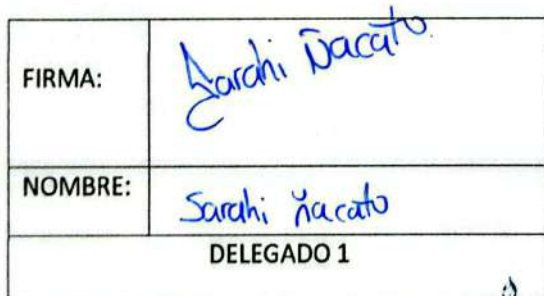 FIRMA: Sarahi Ñacato
NOMBRE: Sarahi ñacato
DELEGADO 1